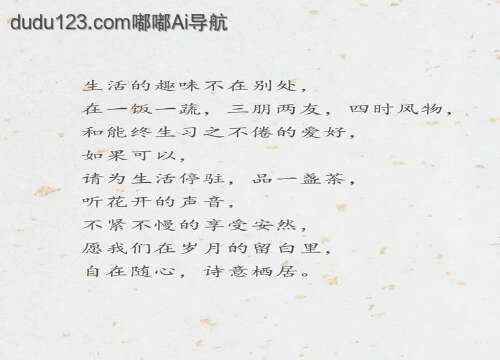 dudu123.com嘟嘟Ai导航
生活的趣味不在别处，
在一饭一蔬，三朋两友，四时风物，
和能终生习之不倦的爱好，
如果可以，
请为生活停驻，品一盏茶，
听花开的声音，
不紧不慢的享受安然，
愿我们在岁月的留白里，
自在随心，诗意栖居。